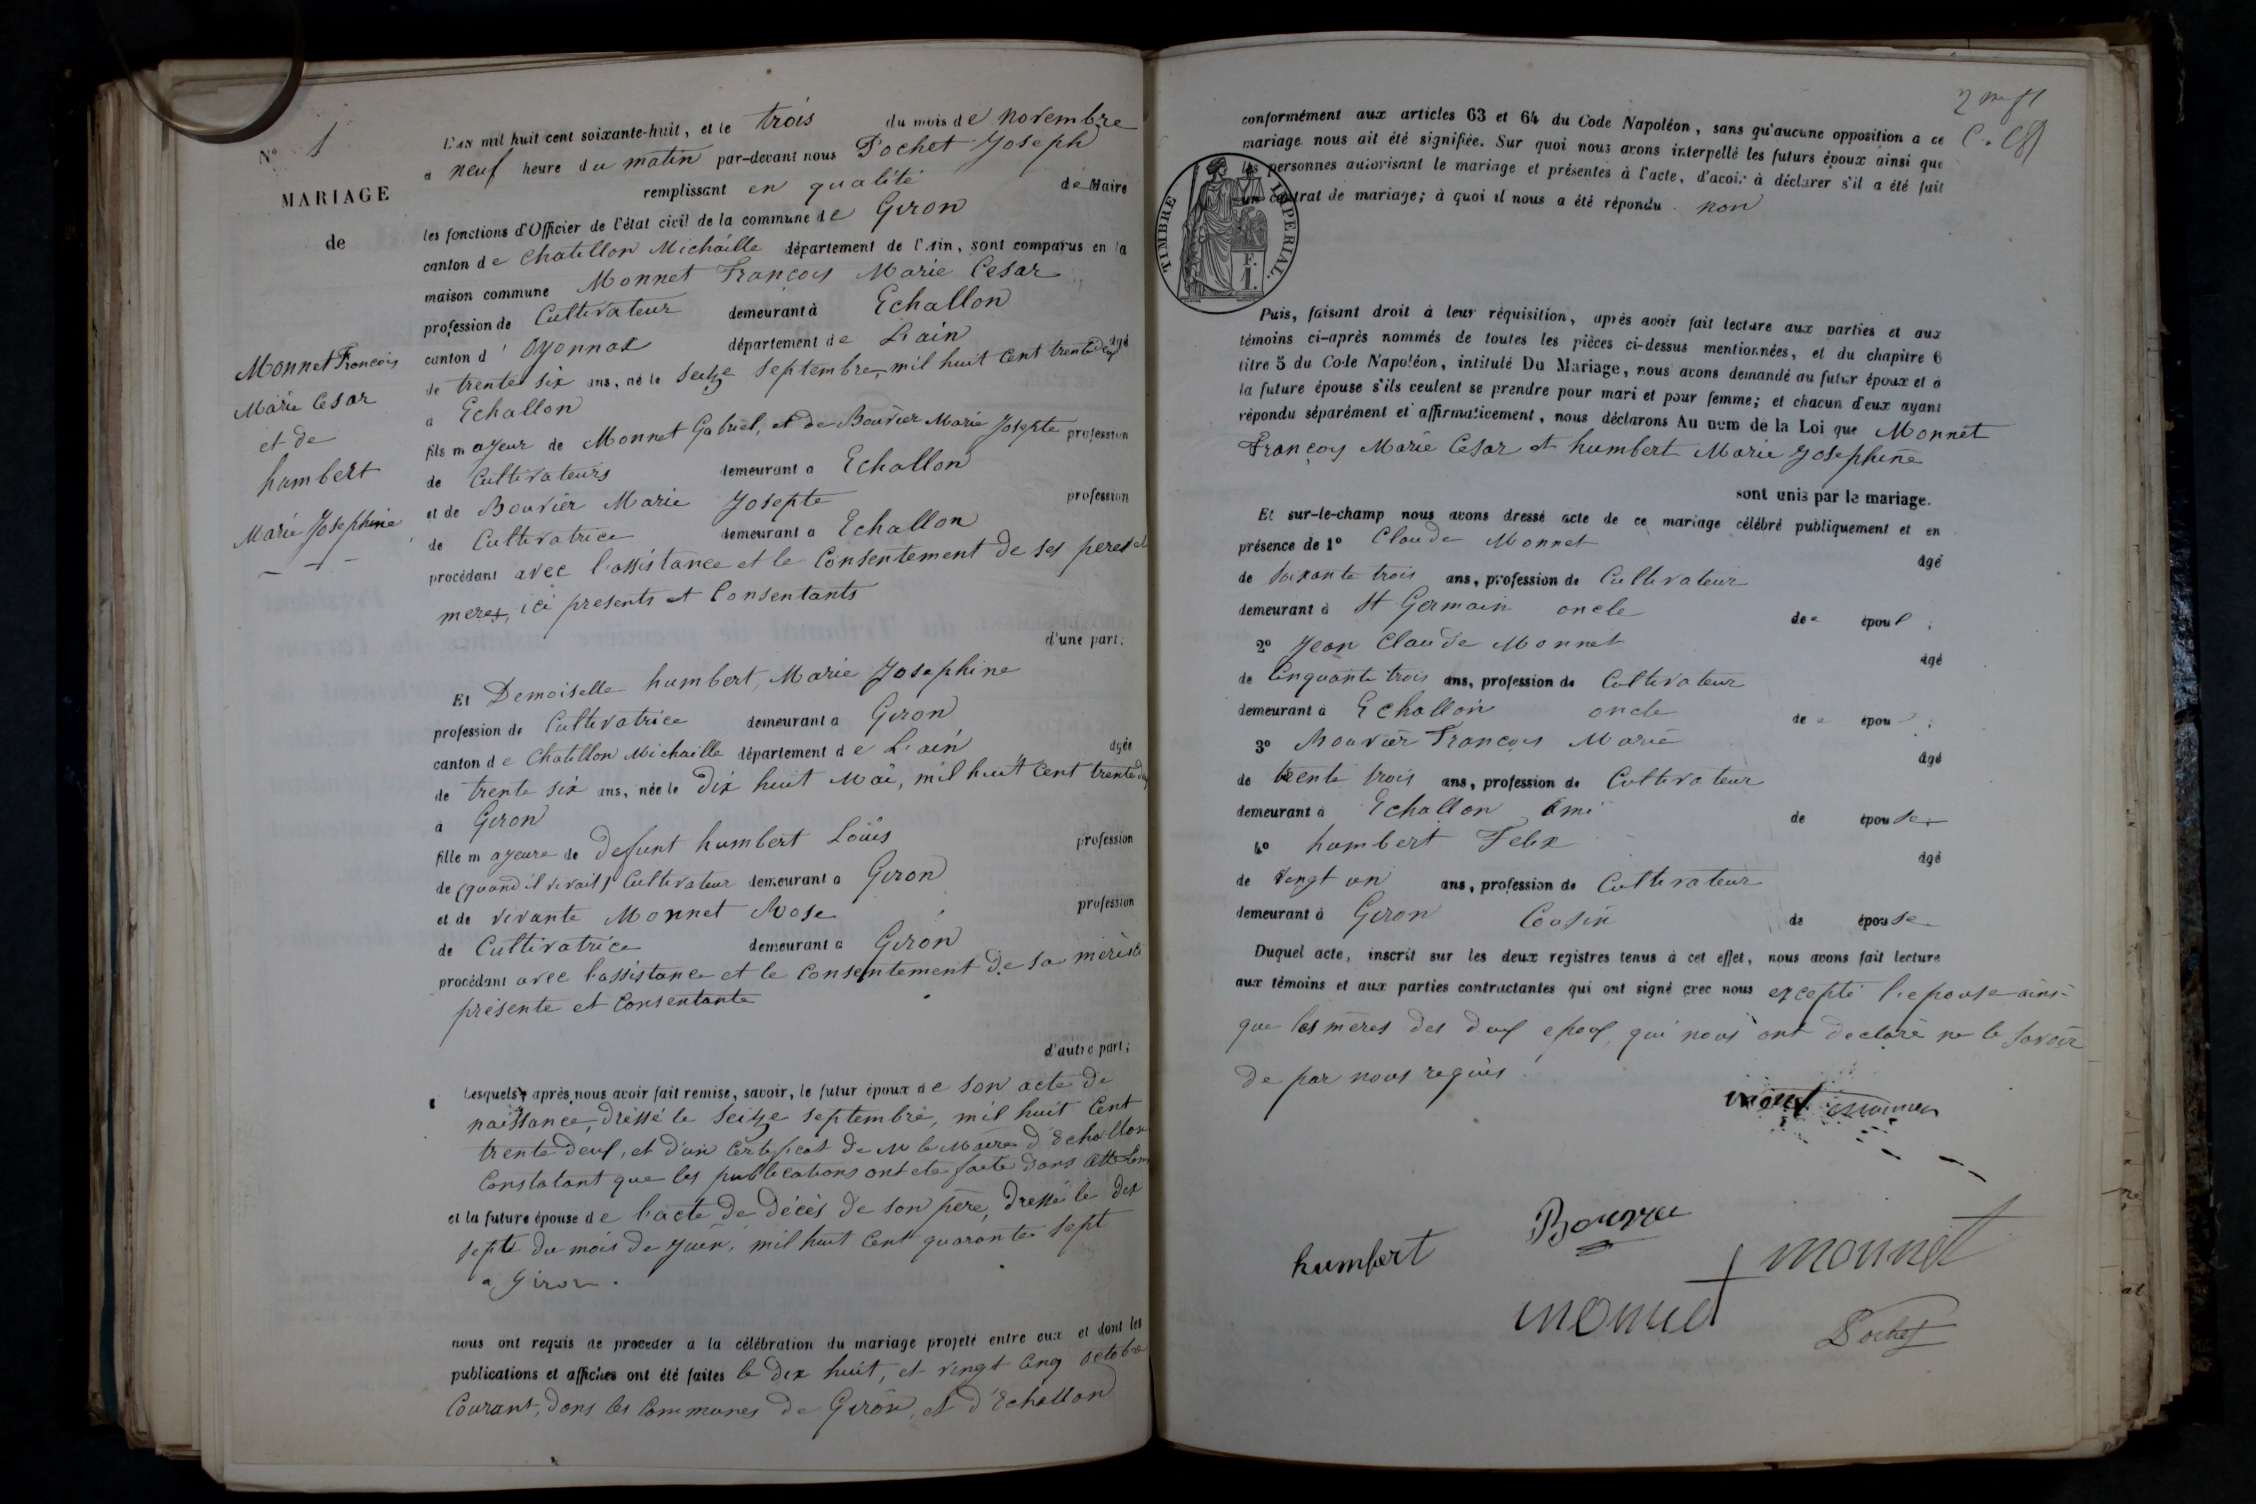 N° 1
MARIAGE
de
Monnet François
Marie Cesar
et de
humbert
Marie Josephine
L'an mil huit cent soixante-huit, et le trois du mois de novembre
a neuf heure du matin par-devant nous Pochet Joseph
remplissant en qualité de Maire
les fonctions d'Officier de l'état civil de la commune de Giron
canton de Chatillon Michaille département de l'Ain, sont comparus en la
maison commune Monnet François Marie Cesar
profession de Cultivateur demeurant à Echallon
canton d'Oyonnax département de L'ain âgé
de trente six ans, né le seize septembre, mil huit cent trente deux
a Echallon
fils mayeur de Monnet Gabriel, et de Bouvier Marie Josepte profession
de Cultivateurs demeurant a Echallon
et de Bouvier Marie Josepte profession
de Cultivatrice demeurant a Echallon
procédant avec l'assistance et le Consentement de ses peres et
meres, ici presents et Consentants
d'une part;
Et Demoiselle humbert, Marie Josephine
profession de Cultivatrice demeurant a Giron
canton de Chatillon Michaille département de L'ain âgée
de trente six ans, née le dix huit Mai, mil huit Cent trente deux
a Giron
fille mayeure de Defunt humbert Louis profession
de (quand il vivait) Cultivateur demeurant a Giron
et de vivante Monnet Rose profession
de Cultivatrice demeurant a Giron
procédant avec l'assistance et le Consentement de sa mère ici
présente et Consentante
d'autre part;
Lesquels, après nous avoir fait remise, savoir, le futur époux de son acte de
naissance, dressé le seize septembre, mil huit Cent
trente deux, et d'un Certificat de M le Maire d'Echallon
Constatant que les publications ont ete faite dans cette
et la future épouse de l'acte de décès de son père, dressé le dix
sept du mois de Juin, mil huit Cent quarante sept
a Giron.
nous ont requis de proceder a la célébration du mariage projeté entre eux et dont les
publications et affiches ont été faites le dix huit, et vingt Cinq octobre
Courant, dans les Communes de Giron, et d'Echallon
conformément aux articles 63 et 64 du Code Napoléon, sans qu'aucune opposition a ce
mariage nous ait été signifiée. Sur quoi nous avons interpellé les futurs époux ainsi que
les personnes autorisant le mariage et présentes à l'acte, d'avoir à déclarer s'il a été fait
un contrat de mariage; à quoi il nous a été répondu non
TIMBRE IMPERIAL.
Puis, faisant droit à leur réquisition, après avoir fait lecture aux parties et aux
témoins ci-après nommés de toutes les pièces ci-dessus mentionnées, et du chapitre 6
titre 5 du Code Napoléon, intitulé Du Mariage, nous avons demandé au futur époux et à
la future épouse s'ils veulent se prendre pour mari et pour femme; et chacun d'eux ayant
répondu séparément et affirmativement, nous déclarons Au nom de la Loi que Monnet
François Marie Cesar et humbert Marie Josephine
sont unis par le mariage.
Et sur-le-champ nous avons dressé acte de ce mariage célébré publiquement et en
présence de 1° Claude Monnet âgé
de soixante trois ans, profession de Cultivateur
demeurant à St Germain oncle de époux;
2° Jean Claude Monnet âgé
de Cinquante trois ans, profession de Cultivateur
demeurant à Echallon oncle de épou;
3° Bouvier François Marie âgé
de trente trois ans, profession de Cultivateur
demeurant à Echallon ami de épouse;
4° humbert Felix âgé
de vingt un ans, profession de Cultivateur
demeurant à Giron Cousin de épouse
Duquel acte, inscrit sur les deux registres tenus à cet effet, nous avons fait lecture
aux témoins et aux parties contractantes qui ont signé avec nous excepté l'epouse ainsi
que les mères des deux epoux, qui nous ont declaré ne le savoir
de par nous requis
humbert
Bouvier
monnet
monnet
Pochet